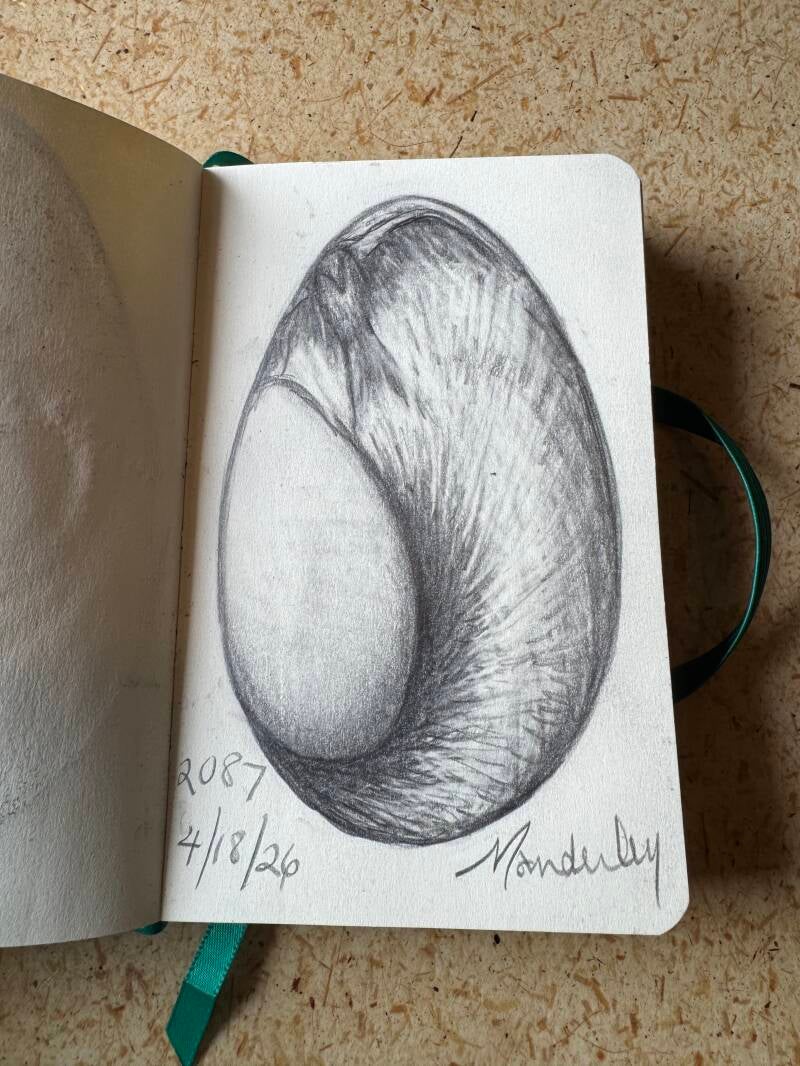 2087
4/18/26
Manderley